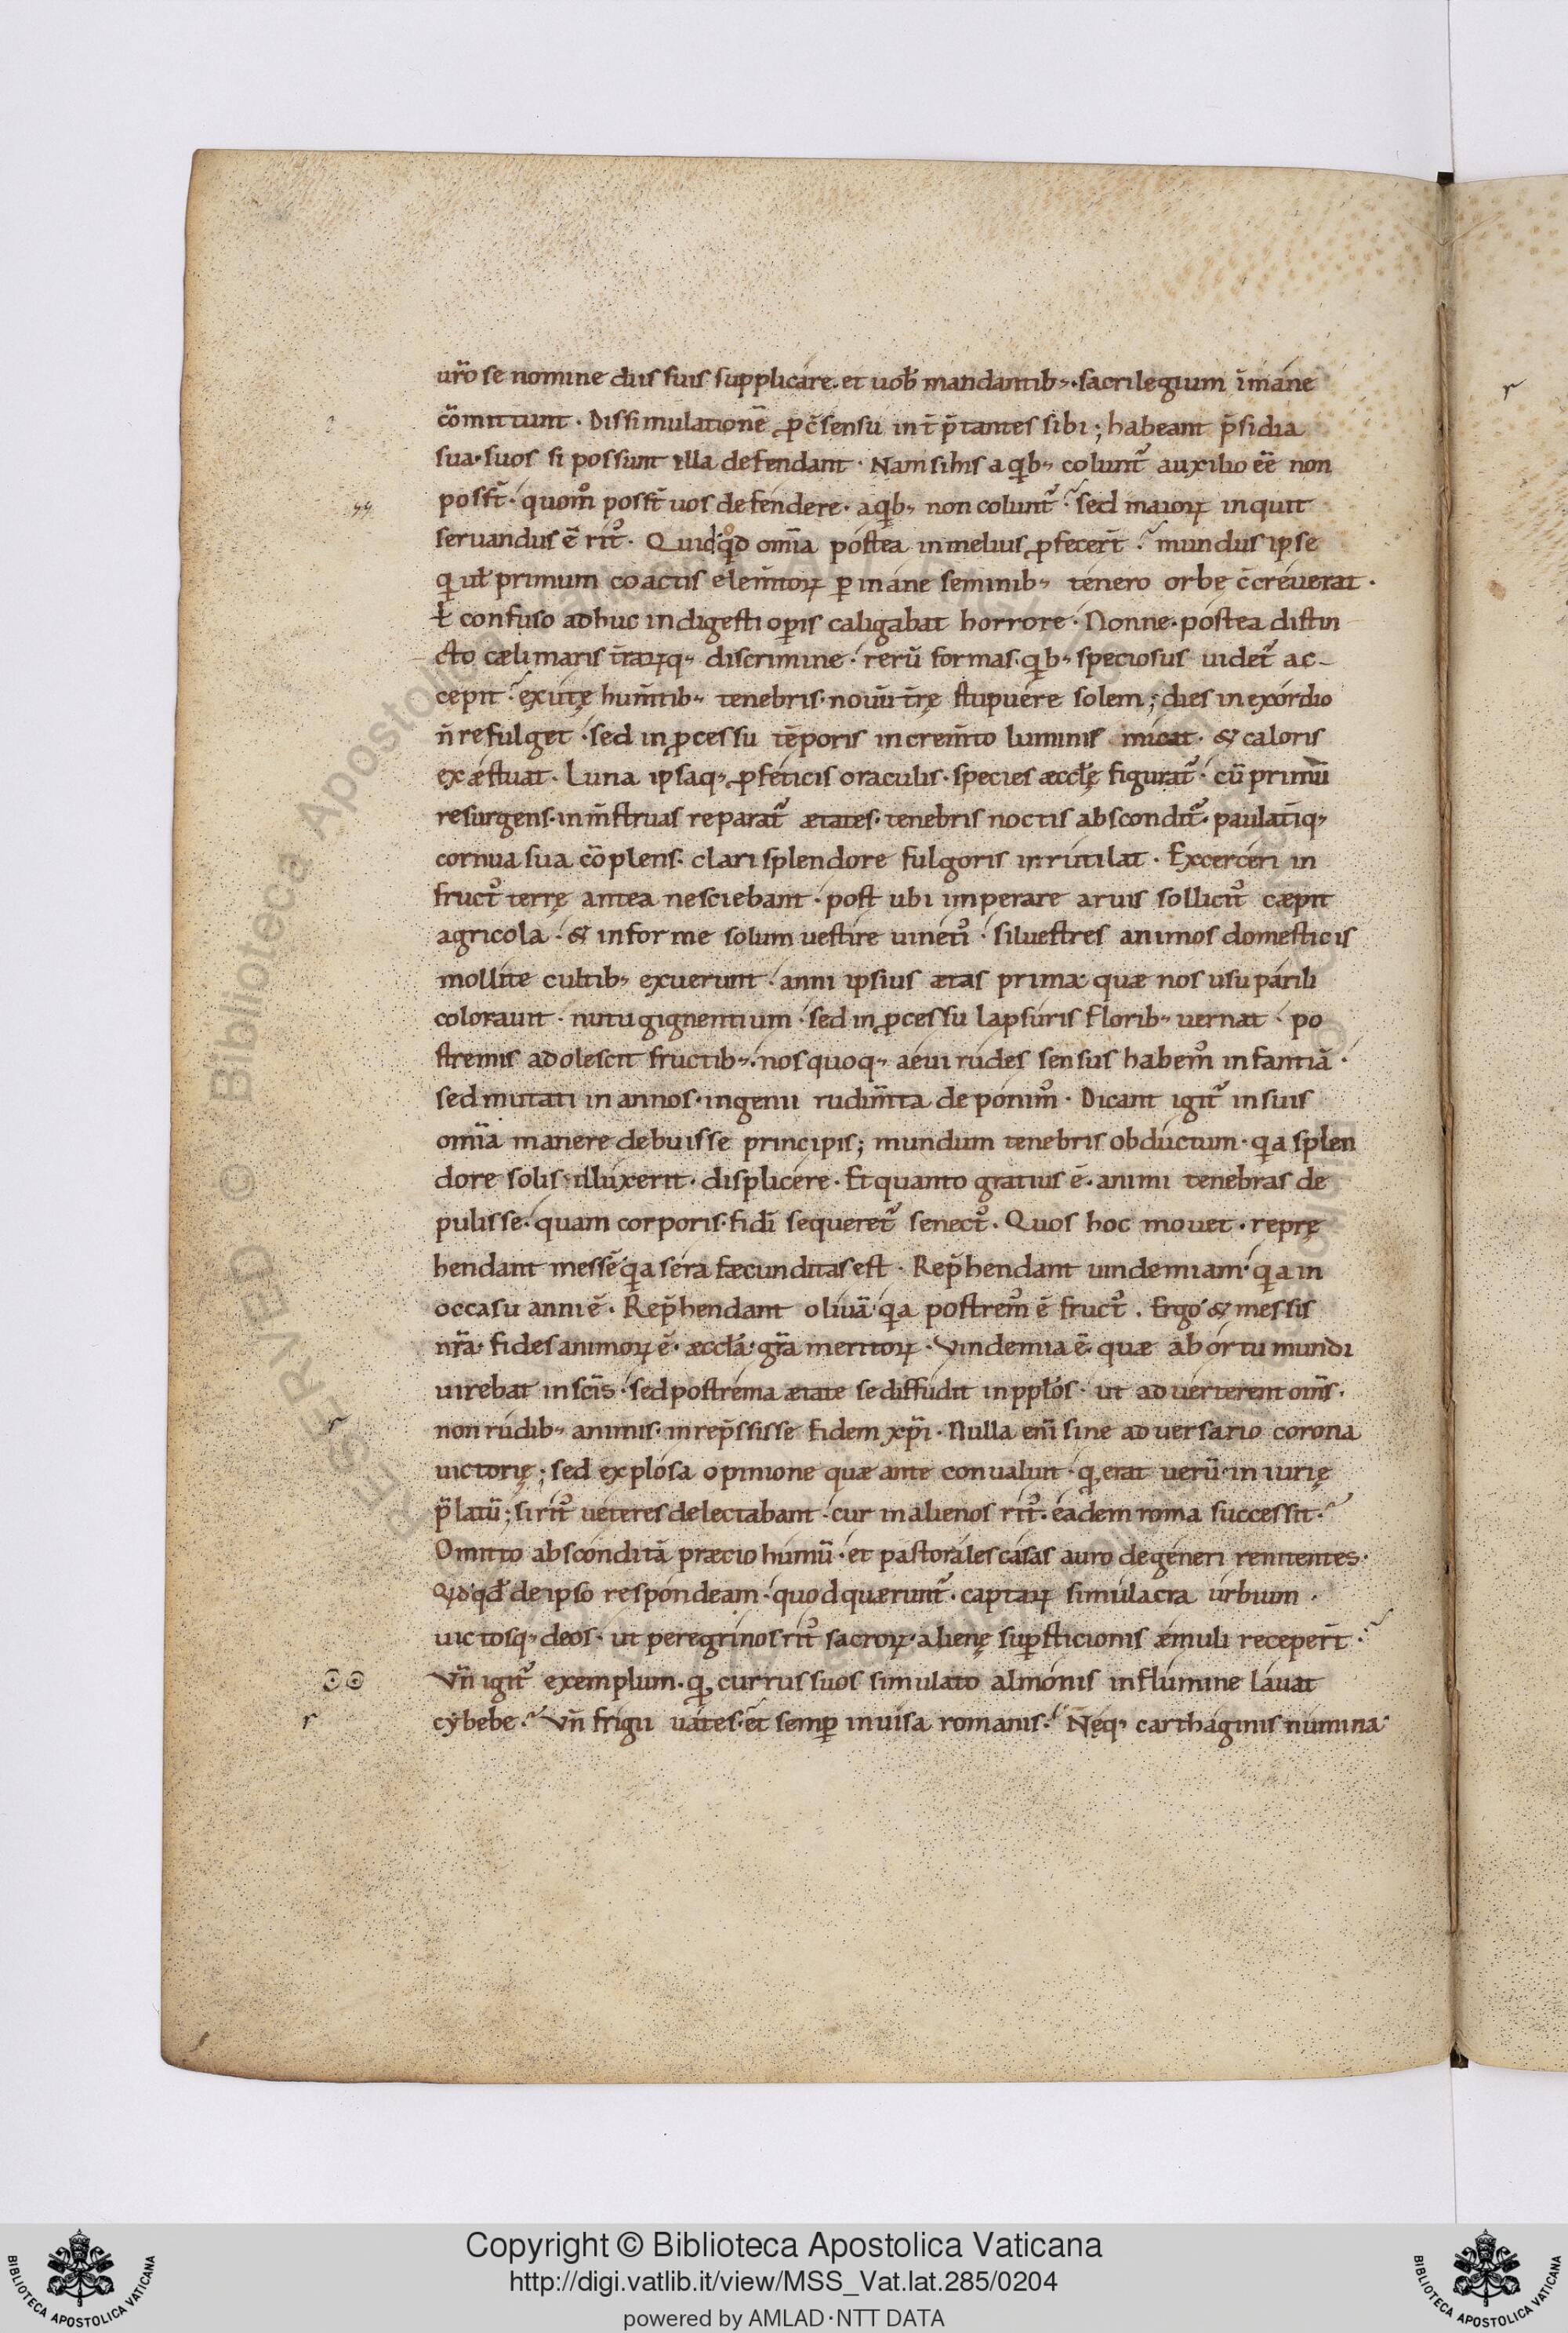 ur̄o se nomine diis suis supplicare. et uob̄ mandantib;. sacrilegium īmane
cōmittunt. Dissimulationē ꝓ c̄sensu int̄p̄tantes sibi; habeant p̄sidia
sua. suos si possunt illa defendant. Nam si his a q̇b; colunt᷑ auxilio ēē non
posst̄. quom̊ posst̄ uos defendere. a q̇b; non colunt᷑? sed maioꝝ inquit
seruandus ē rit᷒. Quid qd̊ om̄ia postea in melius ꝓfecer̄t? mundus ipse
q ut primum coactis elem̄toꝝ ꝑ inane seminib; tenero orbe c̄creuerat.
ł confuso adhuc indigesti oꝑis caligabat horrore. Nonne. postea distin
cto cæli maris t̄raꝝq; discrimine. rerū formas. q̇b; speciosus uidet᷑ ac-
cepit? exutę hum̄tib; tenebris. nouū t̄rę stupuere solem; dies in exordio
n̄ refulget. sed in ꝓcessu tēporis increm̄to luminis micat. & caloris
exæstuat. Luna ipsaq; ꝓfeticis oraculis. species æccłę figurat᷑. cū primū
resurgens. in m̄struas reparat᷑ ætates. tenebris noctis abscondit᷑. paulatī q;
cornua sua cōplens. clari splendore fulgoris inrutilat. Excerceri in
fruct᷒ terrę antea nesciebant. post ubi imperare aruis sollicit᷒ cæpit
agricola. & informe solum uestire uinet᷒. siluestres animos domesticis
mollite cultib; exuerunt. anni ipsius ætas prima quæ nos usu parili
colorauit. nutu gignentium. sed in ꝓcessu lapsuris florib; uernat. po
stremis adolescit fructib;. nos quoq; aeui rudes sensus habem᷒ infantiā.
sed mutati in annos. ingenii rudim̄ta deponim᷒. Dicant igit᷑ in suis
om̄ia manere debuisse principis; mundum tenebris obductum. qa splen
dore solis illuxerit. displicere. Et quanto gratius ē. animi tenebras de
pulisse. quam corporis. fidī sequeret᷑ senect᷒. Quos hoc mouet. reprę
hendant messē qa sera fæcunditas est. Rep̄hendant uindemiam. qa in
occasu anni ē. Rep̄hendant oliuā. qa postrem᷒ ē fruct᷒. Ergo & messis
nr̄a. fides animoꝝ ē. æccła. gr̄a meritoꝝ. Vindemia ē. quæ ab ortu mundi
uirebat in sc̄is. sed postrema ætate se diffudit in ppłos. ut aduerterent om̄s.
non rudib; animis. inrep̄ssisse fidem xp̄i. Nulla enī sine aduersario corona
uictorię; sed explosa opinione quæ ante conualuit. qꝫ erat uerū. in iurię
p̄latū; si rit᷒ ueteres delectabant. cur in alienos rit᷒. eadem roma successit?
Omitto absconditā præcio humū. et pastorales casas auro degeneri renitentes.
Qd qd de ipso respondeam. quod quærunt᷑. captaꝝ simulacra urbium.
uictosq; deos. ut peregrinos rit᷒ sacroꝝ. alienę suꝑsticionis æmuli receper̄t?
Vn̄ igit᷑ exemplum. qꝫ currus suos simulato almonis in flumine lauat
cybebe? Vn̄ frigii uates. et semꝑ inuisa romanis? Neq; carthaginis numina?
Copyright © Biblioteca Apostolica Vaticana
http://digi.vatlib.it/view/MSS_Vat.lat.285/0204
powered by AMLAD·NTT DATA
BIBLIOTECA APOSTOLICA VATICANA
BIBLIOTECA APOSTOLICA VATICANA